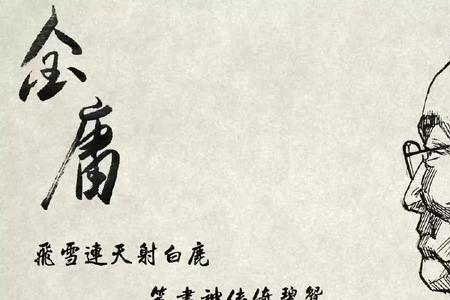 金庸
飛雪連天射白鹿
笑書神侠倚碧鴛